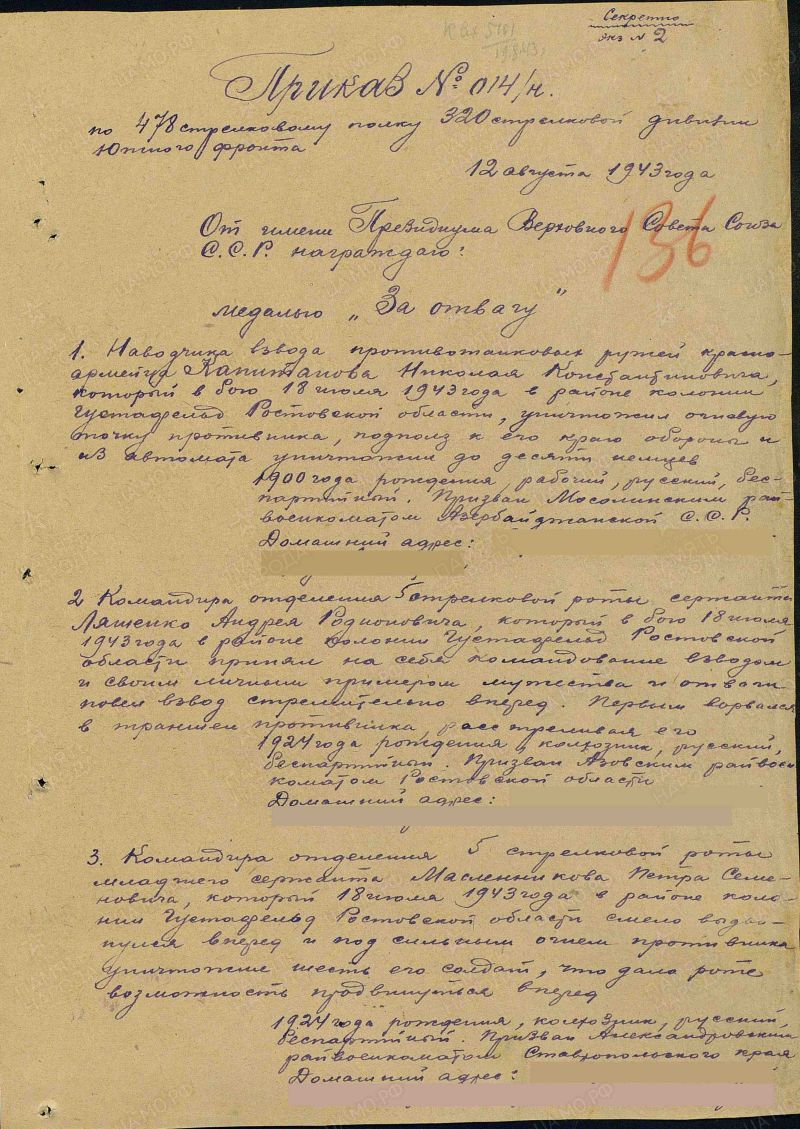 Секретно
экз № 2
136
Приказ № 014/н.
по 478 стрелковому полку 320 стрелковой дивизии
Южного фронта
12 августа 1943 года
От имени Президиума Верховного Совета Союза
С.С.Р. награждаю:
медалью „За отвагу"
1. Наводчика взвода противотанковых ружей красно-
армейца Капитанова Николая Константиновича,
который в бою 18 июля 1943 года в районе колонии
Густафельд Ростовской области, уничтожил огневую
точку противника, подполз к его краю обороны и
из автомата уничтожил до десяти немцев
1900 года рождения, рабочий, русский, бес-
партийный. Призван Масолинским рай-
военкоматом Азербайджанской С.С.Р.
Домашний адрес:
2 Командира отделения 5 стрелковой роты сержанта
Ляшенко Андрея Родионовича, который в бою 18 июля
1943 года в районе колонии Густафельд Ростовской
области принял на себя командование взводом
и своим личным примером мужества и отваги
повел взвод стремительно вперед. Первым ворвался
в траншеи противника, расстреливая его
1924 года рождения, колхозник, русский,
беспартийный. Призван Азовским райвоен
коматом Ростовской области
Домашний адрес:
3. Командира отделения 5 стрелковой роты
младшего сержанта Масленникова Петра Семе-
новича, который 18 июля 1943 года в районе коло-
нии Густафельд Ростовской области смело выдви-
нулся вперед и под сильным огнем противника
уничтожил шесть его солдат, что дало роте
возможность продвинуться вперед
1924 года рождения, колхозник, русский,
беспартийный. Призван Александровским
райвоенкоматом Ставропольского края
Домашний адрес: